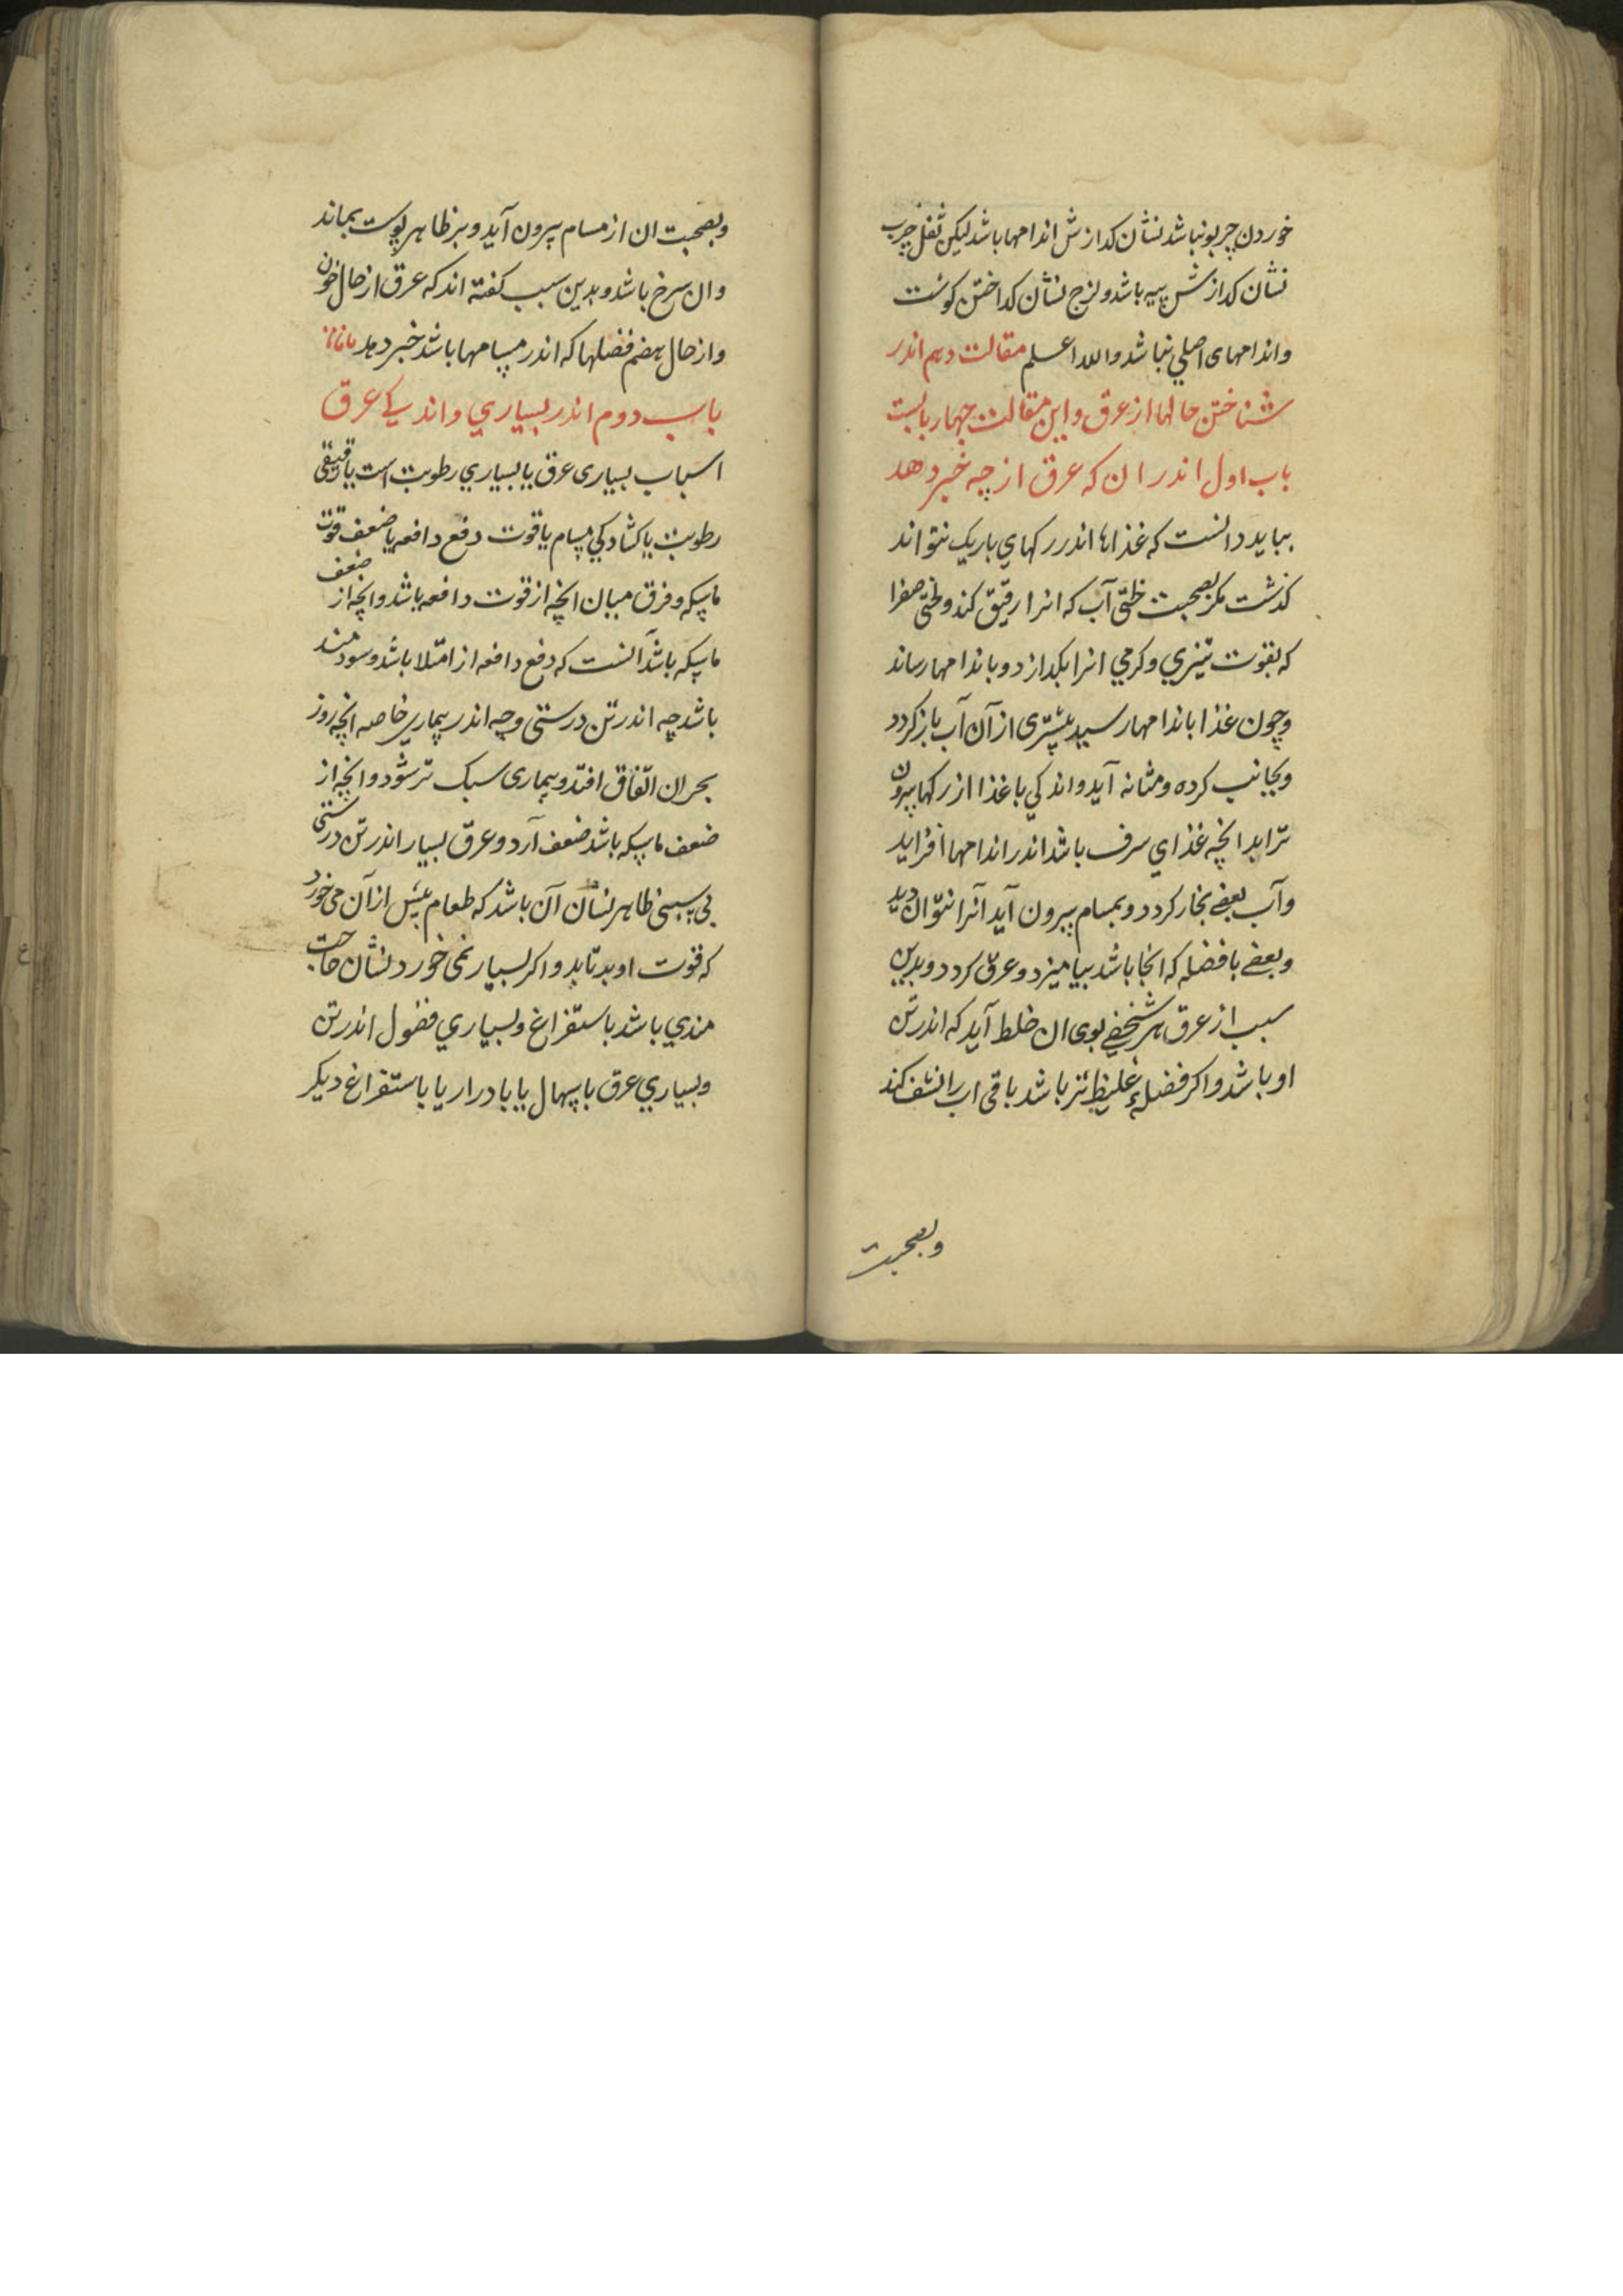 خوردن چربو نباشد نشان کدازش اندامها باشد لیکن ثفل چرب
نشان کدازش پیه باشد و لزج نشان کداختن کوشت
و اندامهای اصلي نباشد والله اعلم مقالت دهم اندر
شناختن حالها از عرق و این مقالت چهار بابست
باب اول اندر ان که عرق از چه خبر دهد
بباید دانست که غذاها اندر رکهاي باریک نتواند
کذشت مکر بصحبت خلتی آب که انرا رقیق کند و لختی صفرا
که بقوت تیزي و کرمي انرا بکدازد و باندامها رساند
و چون غذا باندامها رسید بیشتری از آن آب باز کردد
و بجانب کرده و مثانه آید و اندکي با غذا از رکها بیرون
ترابد انچه غذاي سرف باشد اندر اندامها افزاید
و آب بعضے بخار کردد و بمسام بیرون آید آنرا نتوان دید
و بعضے با فضله که انجا باشد بیامیزد و عرق کردد و بدین
سبب از عرق هر شخصے بوی ان خلط آید که اندر تن
او باشد و اکر فضلهٔ غلیظ تر باشد باقی اب را نشف کند
و بصحبت
و بصحبت ان از مسام بیرون آید و بر ظاهر پوست بماند
و ان سرخ باشد و بدین سبب کفته اند که عرق از حال خون
و از حال هضم فضلها که اندر مسامها باشد خبر دهد
باب دوم اندر بسیاري و اندکے عرق
اسباب بسیاری عرق یا بسیاري رطوبت است یا رقیقی
رطوبت یا کشادکي مسام یا قوت دفع دافعه یا ضعف قوت
ماسکه و فرق میان انچه از قوت دافعه باشد و انچه از ضعف
ماسکه باشد آنست که دفع دافعه از امتلا باشد و سودمند
باشد چه اندر تن درستی و چه اندر بیماري خاصه انچه روز
بحران اتفاق افتد و بیماری سبک تر شود و انچه از
ضعف ماسکه باشد ضعف آرد و عرق بسیار اندر تن درستی
بي سببی ظاهر نشان آن باشد که طعام بیش از آن می خورد
که قوت او بدتابد و اکر بسیار نمی خورد نشان حاجت
مندي باشد باستفراغ و بسیاري فضول اندر تن
و بسیاري عرق باسهال یا بادرار یا باستفراغ دیکر